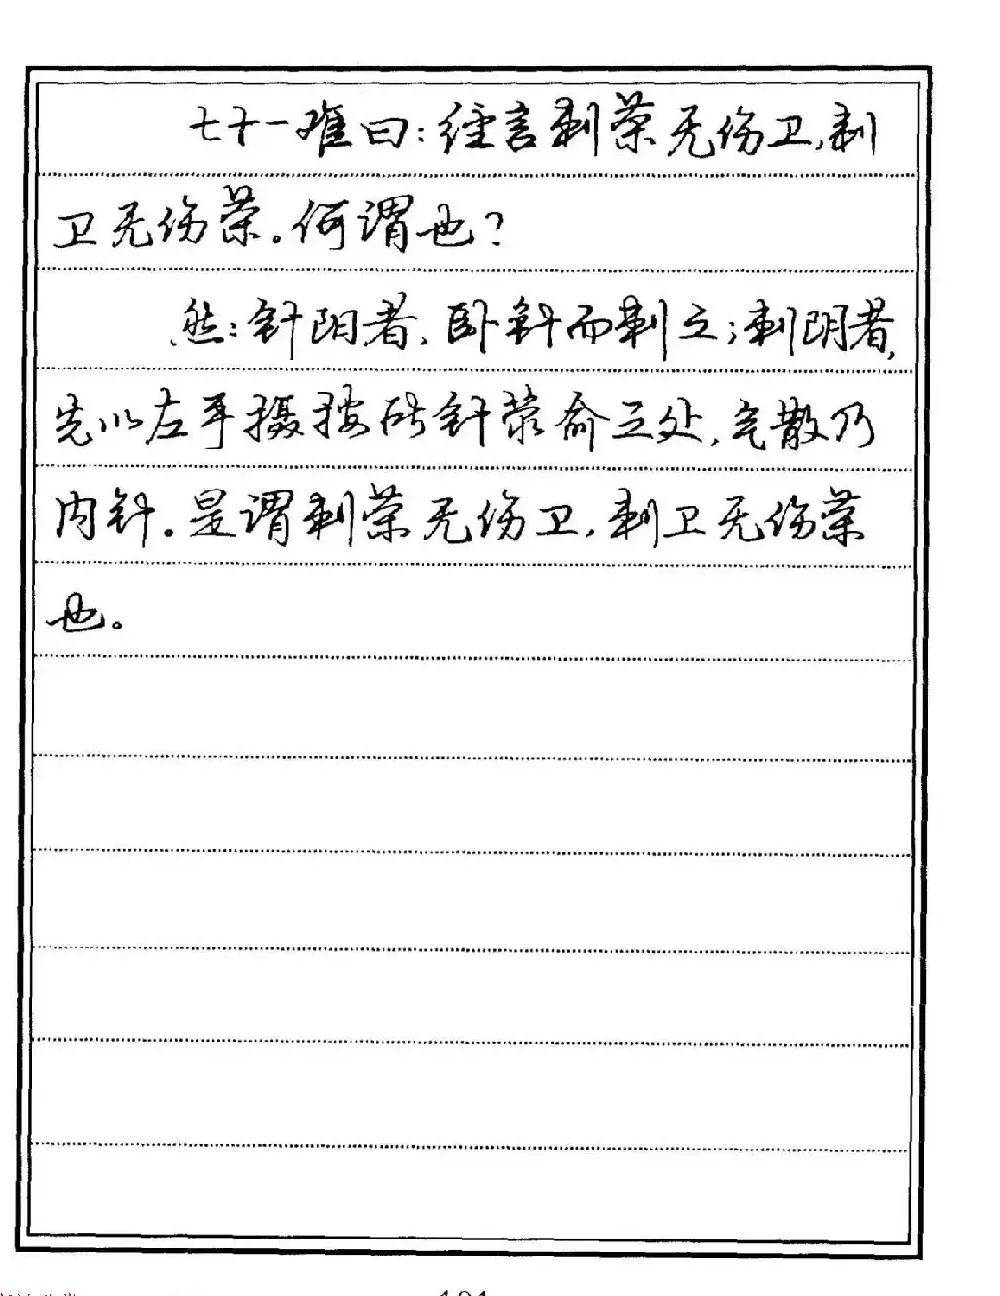 七十一难曰：经言刺荣无伤卫，刺
卫无伤荣。何谓也？
然：针阳者，卧针而刺之；刺阴者，
先以左手摄按所针荥俞之处，气散乃
内针。是谓刺荣无伤卫，刺卫无伤荣
也。